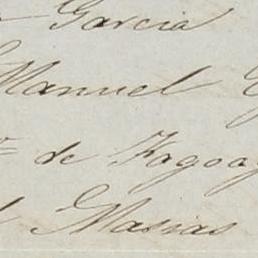 Garcia
Manuel
de Fagoag
Masias